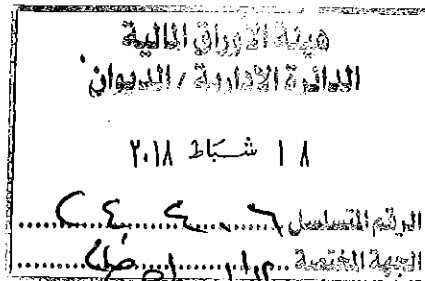 هيئة الأوراق المالية
الدائرة الإدارية / الديوان
١٨ شباط ٢٠١٨
الرقم المتسلسل
الجهة المختصة